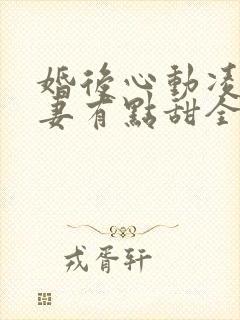 婚後心動凌
妻有點甜全
戎胥轩